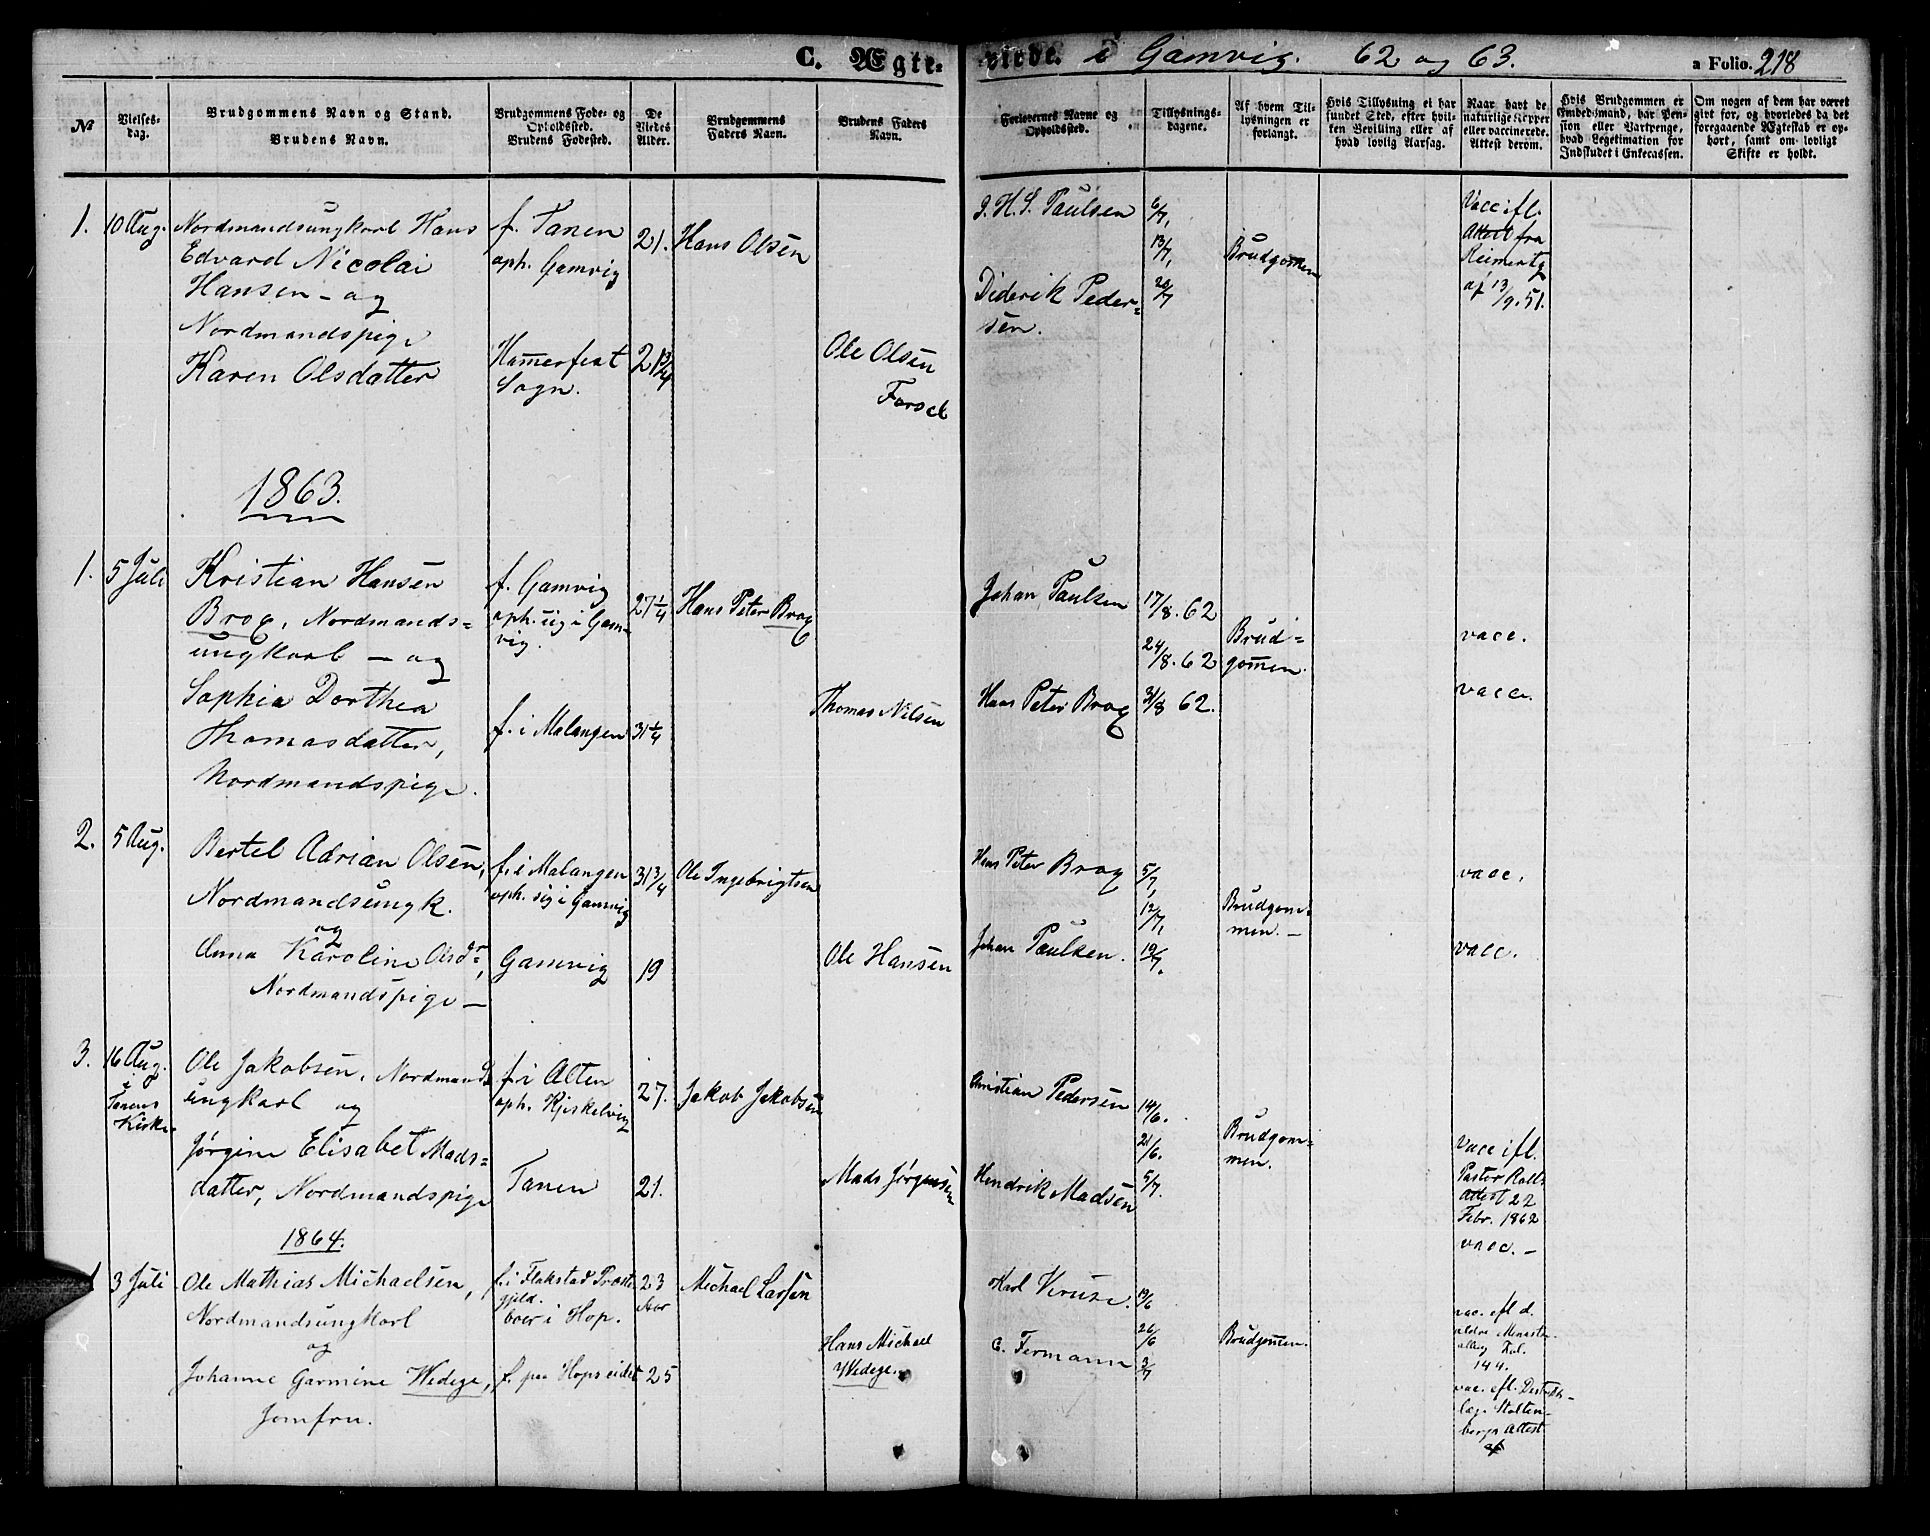 C. Ægte-
viede. i Gamvig. 62 og 63.
a Folio. 218
№
Vielses-
dag.
Brudgommens Navn og Stand.
Brudens Navn.
Brudgommens Føde- og
Opholdssted.
Brudens Fødested.
De
Viedes
Alder.
Brudgommens
Faders Navn.
Brudens Faders
Navn.
Forlovernes Navne og
Opholdssted.
Tillysnings-
dagene.
Af hvem Til-
lysningen er
forlangt.
Hvis Tillysning ei har
fundet Sted, efter hvil-
ken Bevilling eller af
hvad lovlig Aarsag.
Naar havt de
naturlige Kopper
eller vaccinerede.
Attest derom.
Hvis Brudgommen er
Embedsmand, har Pen-
sion eller Vartpenge,
hvad Legitimation for
Indskudet i Enkecassen.
Om nogen af dem har været
givt før, og hvorledes da det
foregaaende Ægteskab er op-
hørt, samt om lovligt
Skifte er holdt.
1. 10 Aug.
Nordmandsungkarl Hans
Edvard Nicolai
Hansen - og
Nordmandspige
Karen Olsdatter
f. Tanen
oph. Gamvig
Hamerfest
Sogn.
21.
21 3/4
Hans Olsen
Ole Olsen
Forsel
J. H. S. Paulsen
Diderik Peder-
sen.
6/7,
13/7,
20/7
Brudgomen
Vacc ifl.
Attest fra
af 13/9. 51.
1863.
1. 5 Juli
Kristian Hansen
Brox, Nordmands-
ungkarl - og
Sophia Dorthea
Thomasdatter,
Nordmandspige.
f. Gamvig
oph. sig i Gam-
vig.
f. i Malangen
27 1/4
31 1/4
Hans Peter Brox
Thomas Nilsen
Johan Paulsen
Hans Peter Brox
17/8. 62
24/8. 62
31/8 62.
Brud-
gomen.
vacc.
vacc.
2. 5 Aug.
Bertel Adrian Olsen,
Nordmandsungk.
og
Anna Karoline Olsdr,
Nordmandspige -
f. i Malangen
oph. sig i Gamvig
Gamvig
31 3/4
19
Ole Ingebrigtsen
Ole Hansen
Hans Peter Brox
Johan Paulsen.
5/7,
12/7,
19/7.
Brudgom-
men. -
vacc.
vacc.
3. 16 Aug.
i
Tanens
Kirke.
Ole Jakobsen, Nordmands
ungkarl og
Jørgine Elisabet Mads-
datter, Nordmandspige
f. i Alten
oph. Kjskelvig
Tanen
27.
21.
Jakob Jakobsen
Mads Jørgensen
Christian Pedersen
Hendrik Madsen
14/6.
21/6.
5/7.
Brudgom-
men.
Vacc ifl.
Pastor
Attest 22
Febr. 1862
vacc. -
1864.
1 3 Juli
Ole Mathias Michaelsen,
Nordmandsungkarl
og
Johanne Garmine Wedege,
Jomfru.
f. i Flakstad Præste
gjeld.
boer i Hop.
f. paa Hopseidet
23
Aar
25
Michael Larsen
Hans Michael
Wedege.
Karl Kruse.
C. Fermann
19/6
26/6
3/7
Brudgomen.
vac. efl d.
ældre
144.
vac. efl. Distrikts-
læg. Stolten-
bergs Attest
af